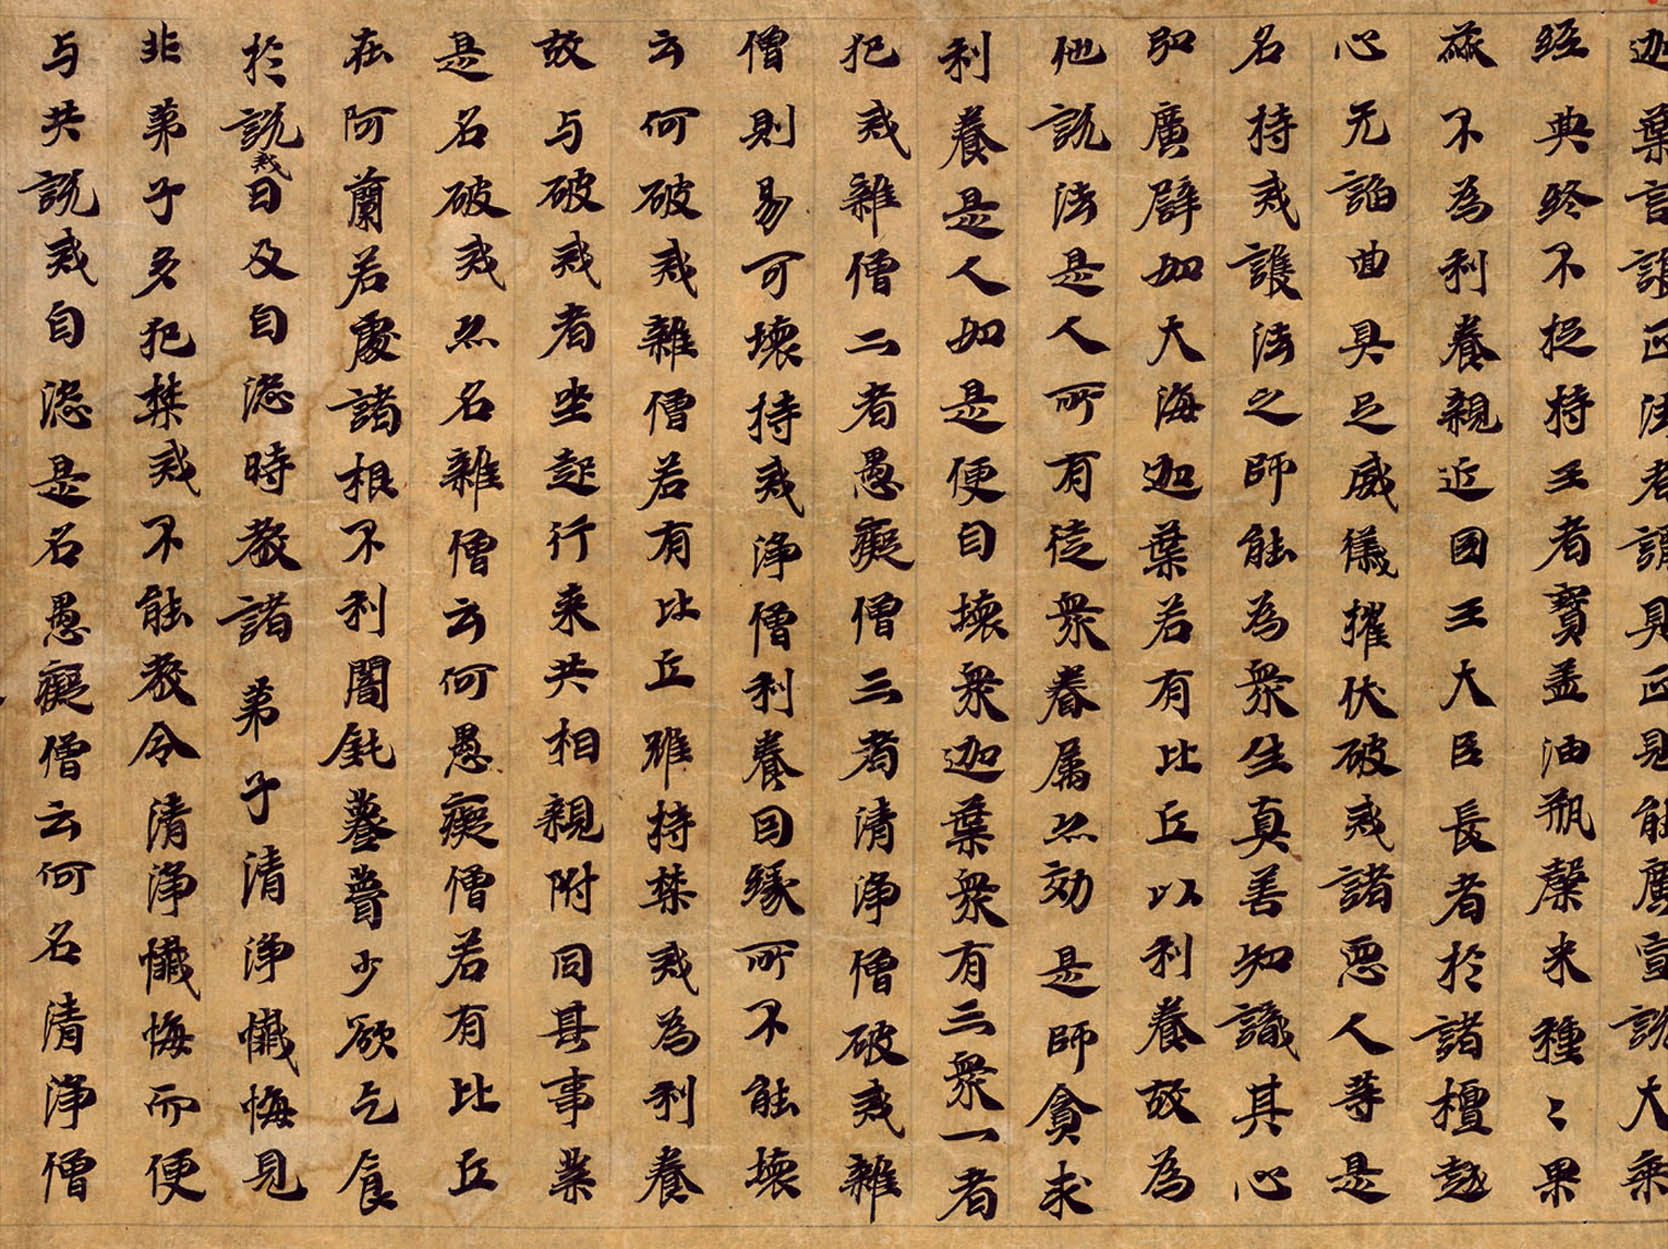 迦葉言護正法者謂具正見能廣宣說大乘
經典終不捉持王者寶盖油瓶穀米種〻果
蓏不為利養親近國王大臣長者於諸檀越
心无諂曲具足威儀摧伏破戒諸惡人等是
名持戒護法之師能為衆生真善知識其心
弘廣譬如大海迦葉若有比丘以利養故為
他說法是人所有徒衆眷属亦効是師貪求
利養是人如是便自壞衆迦葉衆有三衆一者
犯戒雜僧二者愚癡僧三者清淨僧破戒雜
僧則易可壞持戒淨僧利養因緣所不能壞
云何破戒雜僧若有比丘雖持禁戒為利養
故与破戒者坐起行来共相親附同其事業
是名破戒亦名雜僧云何愚癡僧若有比丘
在阿蘭若處諸根不利闇鈍瞢少欲乞食
於說戒日及自恣時教諸弟子清淨懺悔見
非弟子多犯禁戒不能教令清淨懺悔而便
与共說戒自恣是名愚癡僧云何名清淨僧